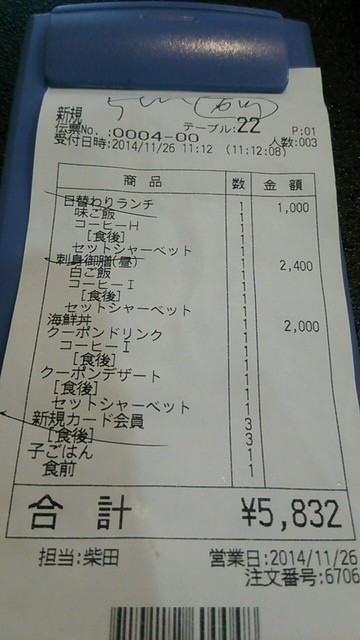 新規
伝票No.:0004-00 テーブル:22 P:01
受付日時:2014/11/26 11:12 (11:12:08) 人数:003
商品 数 金額
日替わりランチ 1 1,000
味ご飯 1
コーヒーH 1
[食後] 1
セットシャーベット 1
刺身御膳(昼) 1 2,400
白ご飯 1
コーヒーI 1
[食後] 1
セットシャーベット 1
海鮮丼 1 2,000
クーポンドリンク 1
コーヒーI 1
[食後] 1
クーポンデザート 1
[食後] 1
セットシャーベット 1
新規カード会員 3
[食後] 3
子ごはん 1
食前 1
合計 ¥5,832
担当:柴田 営業日:2014/11/26
注文番号:6706